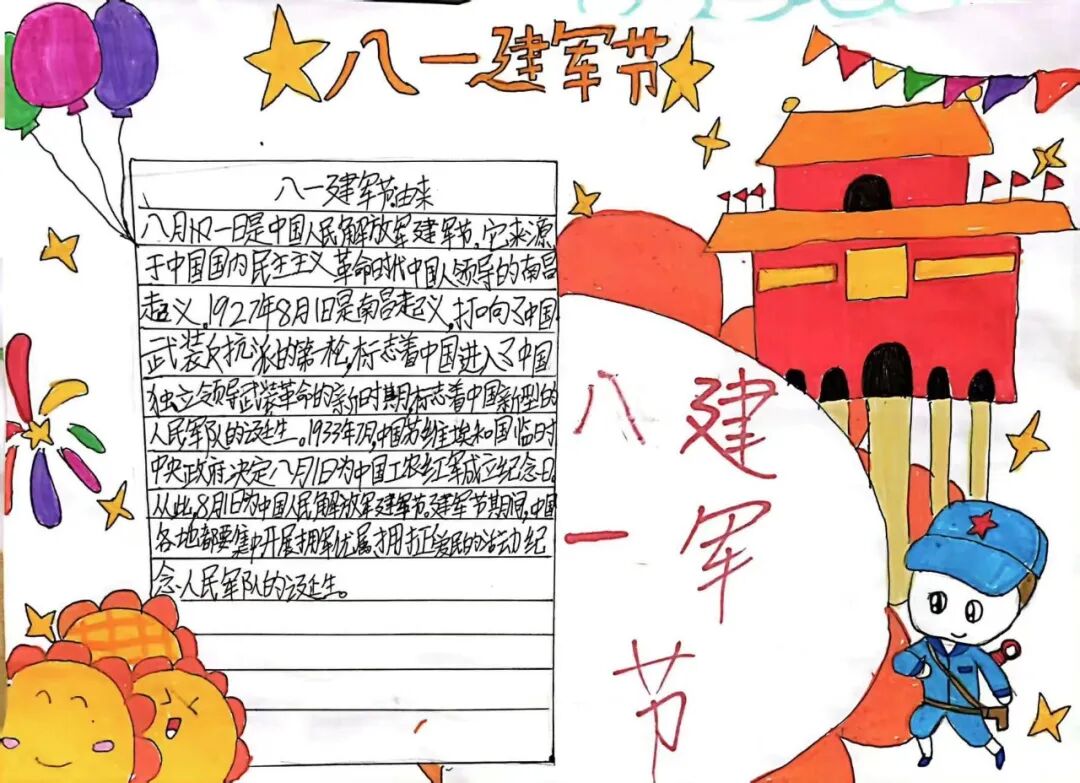 八一建军节
八一建军节由来
八月一日是中国人民解放军建军节,它来源
于中国国内民主主义革命时代中国人领导的南昌
起义。1927年8月1日是南昌起义,打响了中国
武装反抗派的第一枪,标志着中国进入了中国
独立领导武装革命的新时期,标志着中国新型的
人民军队的诞生。1933年7月,中国苏维埃和国临时
中央政府决定八月1日为中国工农红军成立纪念日。
从此,8月1日为中国人民解放军建军节。建军节期间,中国
各地都要集中开展拥军优属、拥政爱民的活动纪
念人民军队的诞生。
八一
建军
节